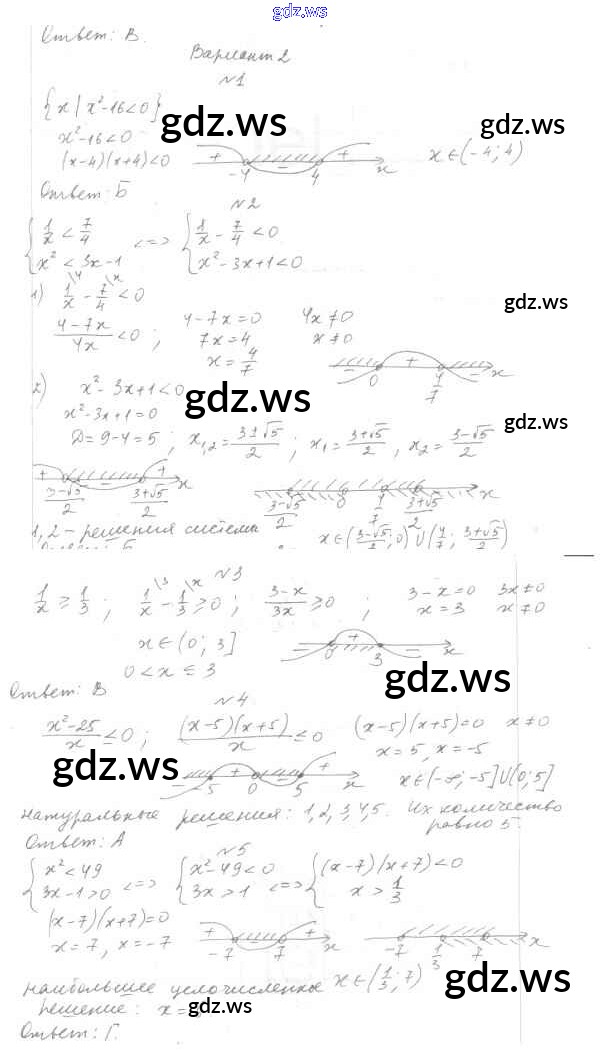 gdz.ws
Ответ: В.
Вариант 2
№1
{x | x²-16<0}
x²-16<0
(x-4)(x+4)<0
+ -4 - 4 + x
x∈(-4;4)
gdz.ws
gdz.ws
Ответ: Б
№2
{ 1/x < 7/4
x² < 3x-1
<=> { 1/x - 7/4 < 0
x²-3x+1<0
1) 1/x - 7/4 < 0
gdz.ws
(4-7x)/4x < 0 ; 4-7x=0 4x≠0
7x=4 x≠0
x = 4/7
- 0 + 4/7 - x
2) x²-3x+1<0
gdz.ws
x²-3x+1=0
gdz.ws
D=9-4=5 ; x1,2 = (3±√5)/2 ; x1 = (3+√5)/2 , x2 = (3-√5)/2
+ (3-√5)/2 - (3+√5)/2 + x
(3-√5)/2 0 4/7 (3+√5)/2 x
1, 2 - решения системы
x∈((3-√5)/2; 0)∪(4/7; (3+√5)/2)
№3
1/x ≥ 1/3 ; 1/x - 1/3 ≥ 0 ; (3-x)/3x ≥ 0 ; 3-x=0 3x≠0
x=3 x≠0
x∈(0; 3]
0<x≤3
- 0 + 3 - x
gdz.ws
Ответ: В
№4
(x²-25)/x ≤ 0 ; (x-5)(x+5)/x ≤ 0 (x-5)(x+5)=0 x≠0
x=5, x=-5
gdz.ws
- -5 + 0 - 5 + x
x∈(-∞;-5]∪(0;5]
натуральные решения: 1,2,3,4,5. Их количество
равно 5.
Ответ: А
№5
{ x²<49
3x-1>0
<=> { x²-49<0
3x>1
<=> { (x-7)(x+7)<0
x>1/3
(x-7)(x+7)=0
x=7, x=-7
+ -7 - 7 + x
-7 1/3 7 x
наибольшее целочисленное x∈(1/3; 7)
решение: x=
gdz.ws
gdz.ws
Ответ: Г.